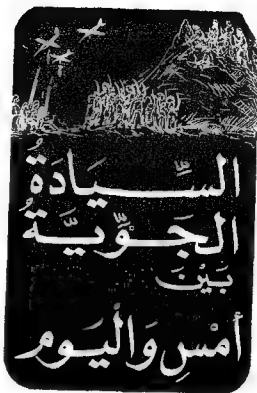 السِّيَادَةُ
الجَوِّيَّةُ
بَيْنَ
أَمْسِ وَاليَوم